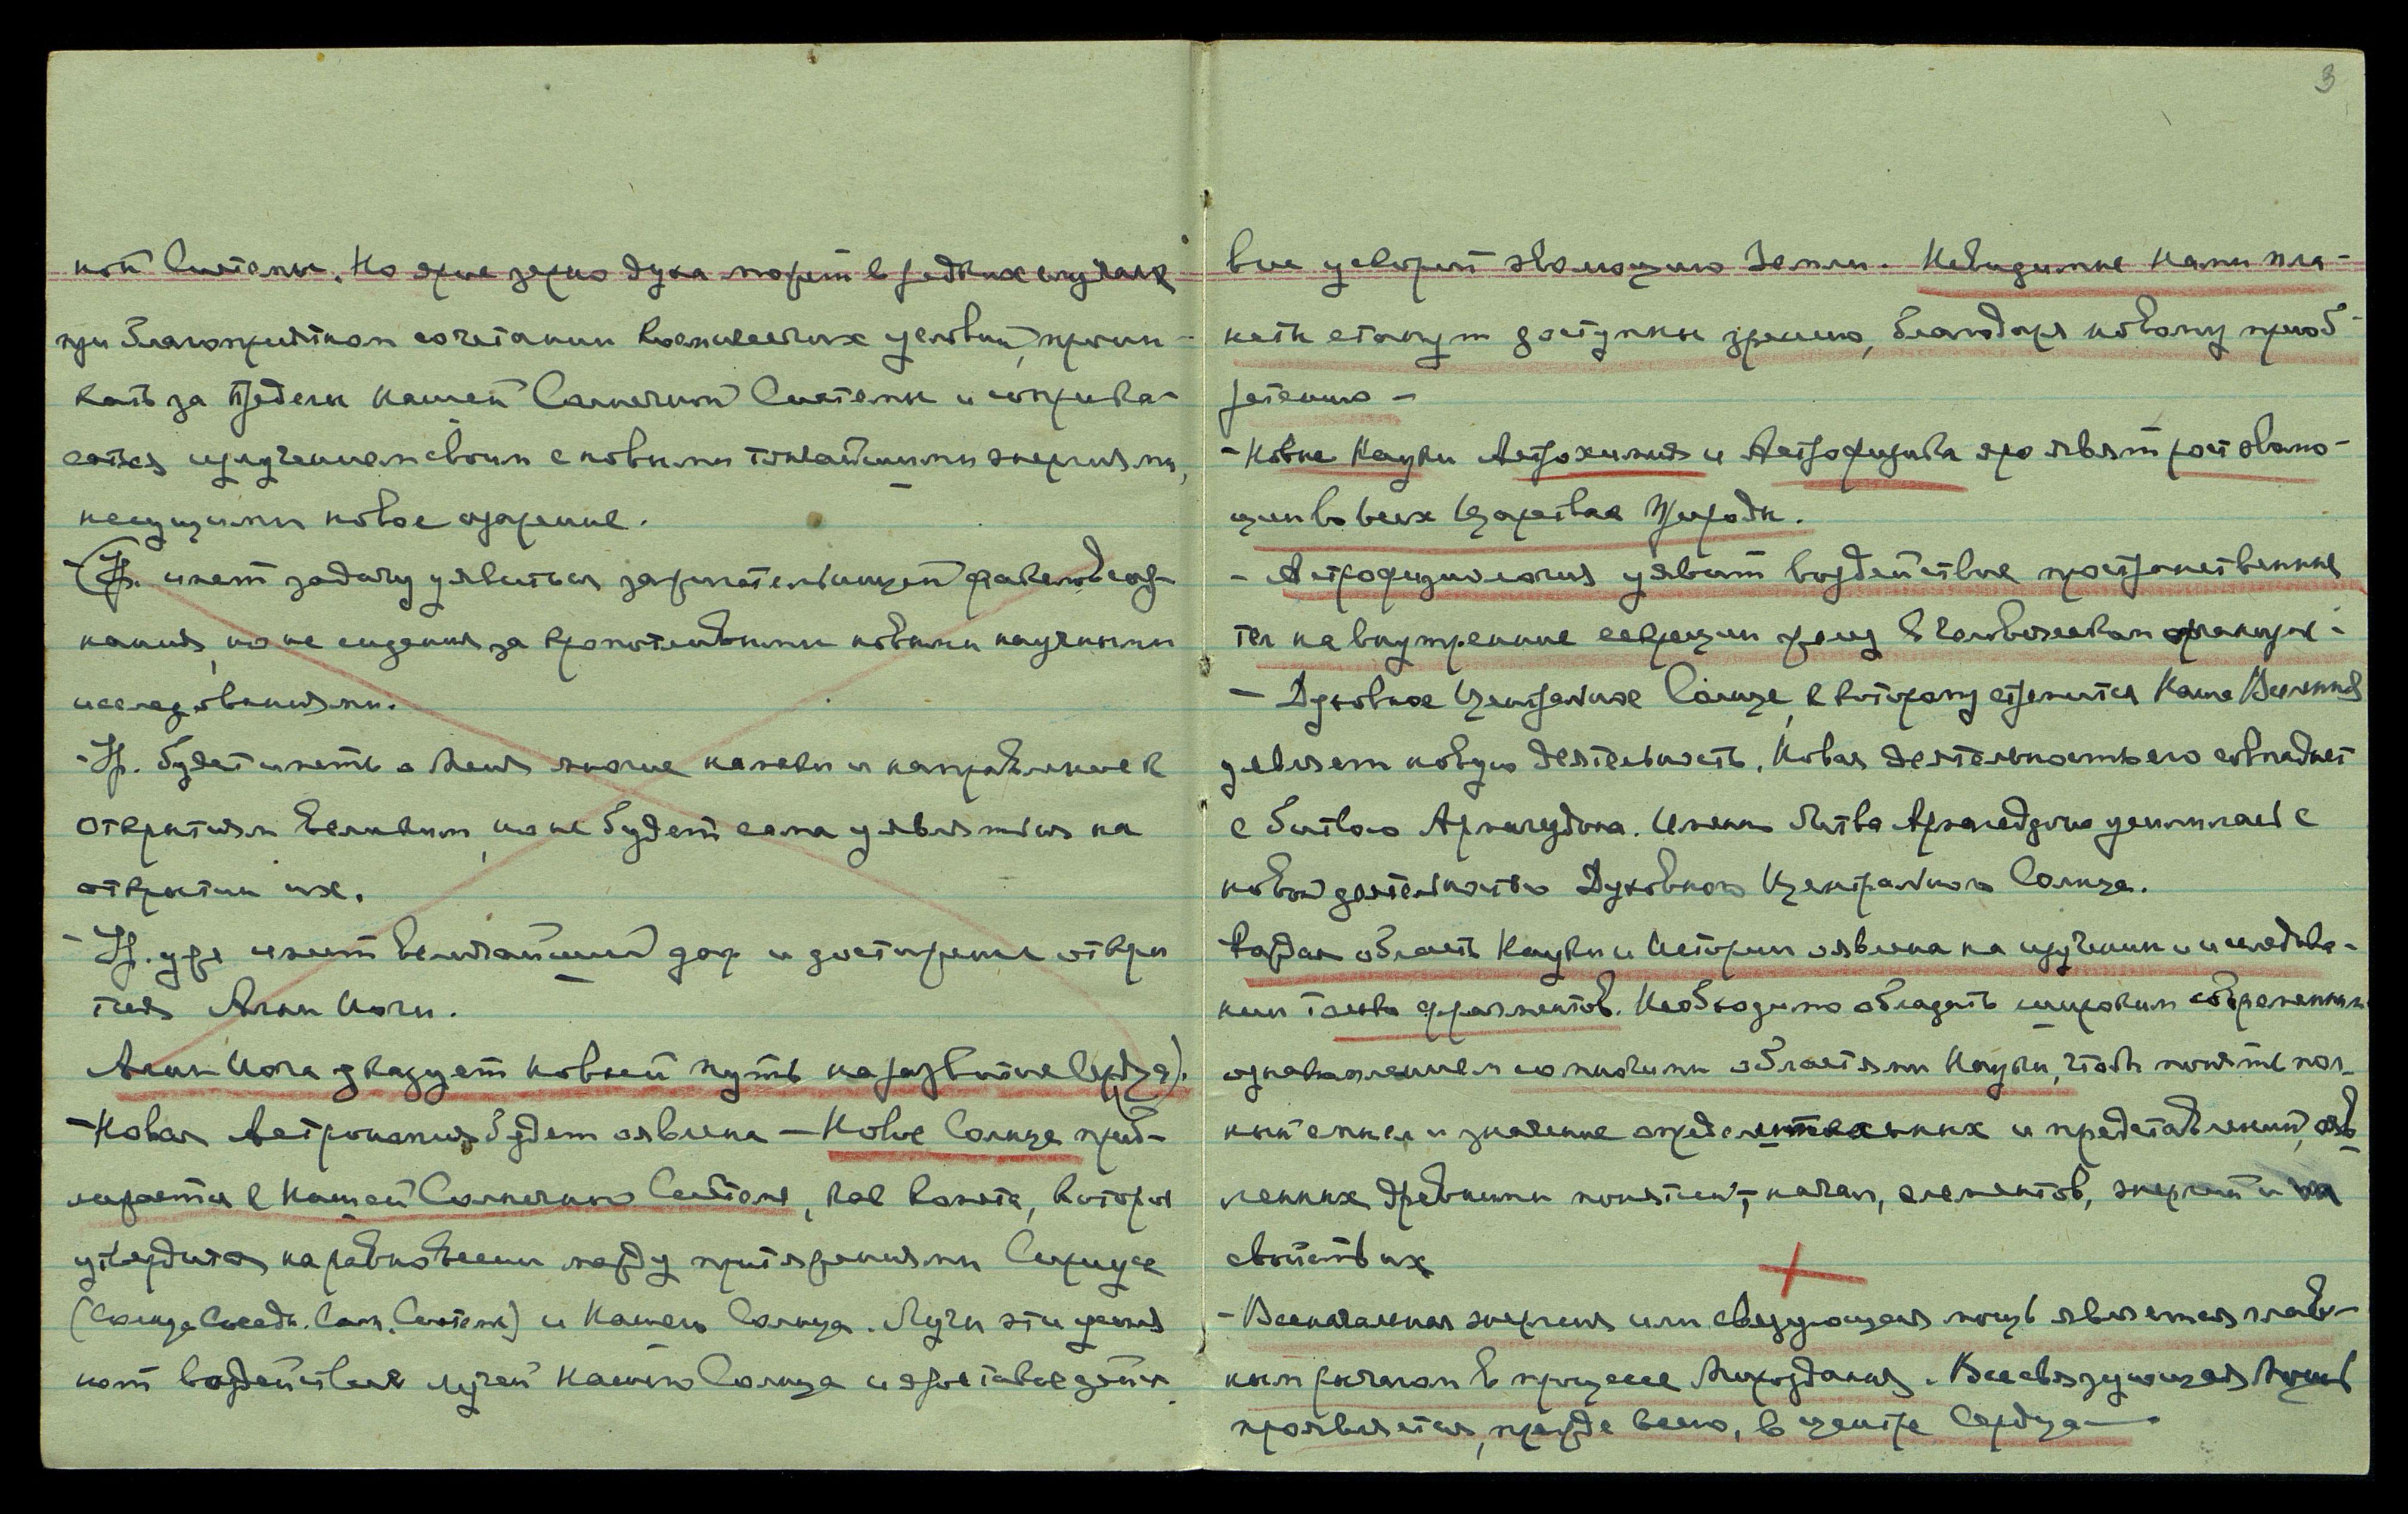 ной Системы. Но ярое зерно духа может в редких случаях
при благоприятном сочетании космических условий, проник-
нать за пределы нашей Солнечной Системы и соприка-
саться излучением своим с новыми тончайшими энергиями,
несущими новое озарение.
- (Ур. имеет задачу явиться зажигательницей факелов соз-
нания, но не сидения за кропотливыми новыми научными
исследованиями.
- Ур. будет иметь о Меня многие намеки и направление к
открытиям великим, но не будет сама уявляться на
открытии их.
- Ур. уже имеет величайший дар и достижение откры-
тия Агни Йоги.
Агни Йога указует новый путь на развитие Сердца).
- Новая Астрономия будет оявлена — Новое Солнце приб-
лижается к Нашей Солнечной Системе, как Комета, которая
утвердится на равновесии между притяжениями Сириуса
(Солнца Соседн. Солн. Системы) и Нашего Солнца. Лучи эти усилят
воздействие лучей нашего Солнца и ярое такое дейст-
3
вие ускорит эволюцию Земли. Невидимые нами пла-
неты станут доступны зрению, благодаря новому приоб-
ретению -
- Новые Науки Астрохимия и Астрофизика яро явят рост эволю-
ции во всех Царствах Природы.
- Астрофизиология уявит воздействие пространственных
тел на внутренние секреции желез в человеческом организме.
- Духовное Центральное Солнце, к которому стремится Наша Вселенная
уявляет новую деятельность. Новая деятельность его совпадает
с битвою Армагеддона. Именно битва Армагеддона усилилась с
новой деятельностью Духовного Центрального Солнца.
Каждая область Науки и Истории оявлена на изучении и исследова-
нии только фрагментов. Необходимо обладать широким современным
ознакомлением со многими областями Науки, чтобы понять пол-
ный смысл и значение определительных и представлений, явл
ленных древними понятий, начал, элементов, энергий и
свойств их
- Всеначальная энергия или связующая мощь является глав-
ным рычагом в процессе Мироздания. Всесвязующая Мощь
проявляется, прежде всего, в центре Сердца —